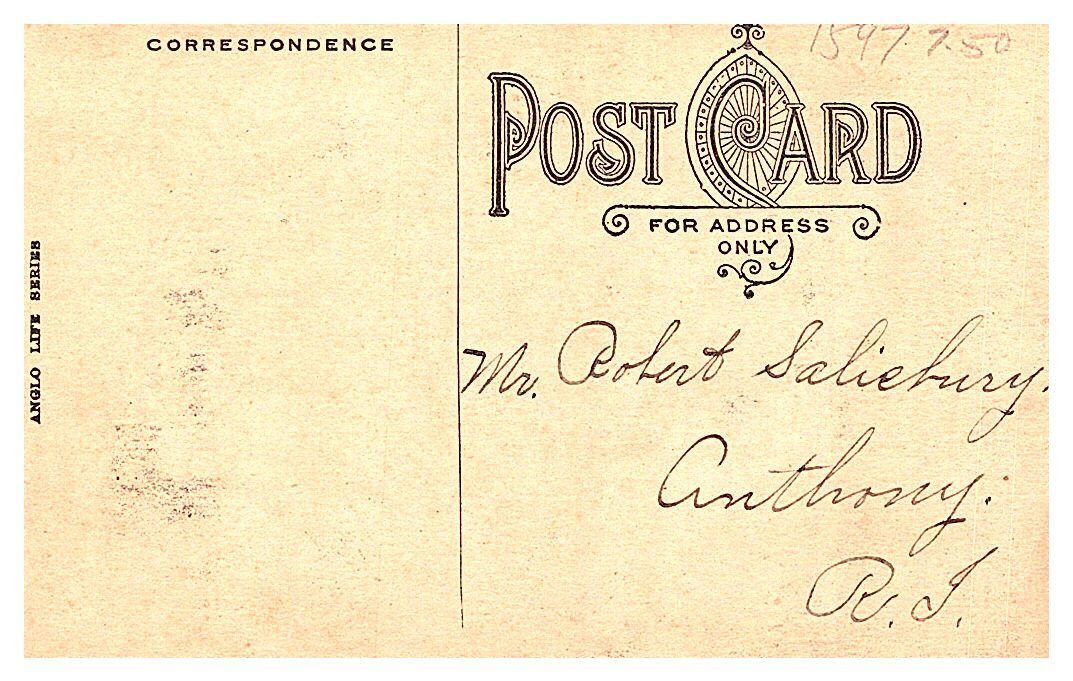 CORRESPONDENCE
1597 7.50
POST CARD
FOR ADDRESS
ONLY
ANGLO LIFE SERIES
Mr. Robert Salisbury.
Anthony.
R. I.